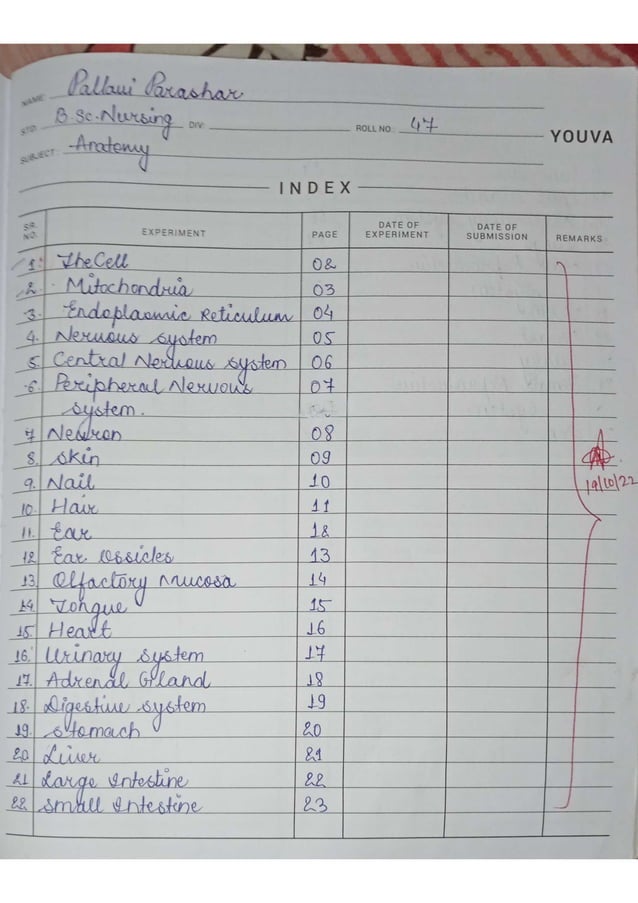 NAME: Pallavi Parashar
STD.: B Sc. Nursing DIV.: ROLL NO.: 47
YOUVA
SUBJECT: Anatomy
INDEX
SR. NO. EXPERIMENT PAGE DATE OF EXPERIMENT DATE OF SUBMISSION REMARKS
1. The Cell 02
2. Mitochondria 03
3. Endoplasmic Reticulum 04
4. Nervous system 05
5. Central Nervous system 06
6. Peripheral Nervous 07
system.
7 Neuron 08
8. Skin 09
9. Nail 10
19/10/22
10. Hair 11
11. Ear 12
12 Ear Ossicles 13
13 Olfactory Mucosa 14
14. Tongue 15
15. Heart 16
16. Urinary system 17
17. Adrenal Gland 18
18. Digestive system 19
19. Stomach 20
20 Liver 21
21 Large Intestine 22
22 Small Intestine 23